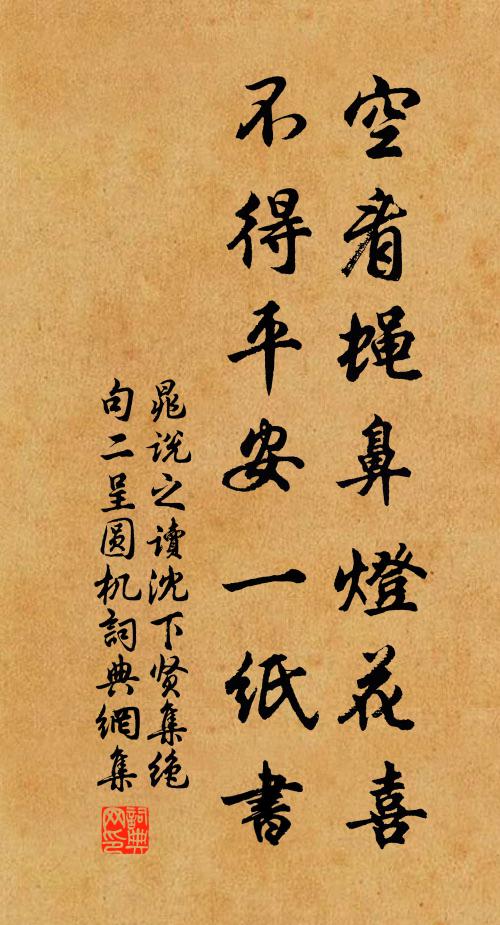 空看蝇鼻燈花喜
不得平安一纸書
晁说之讀沈下贤集绝
句二呈圆机詞典網集
詞典网印